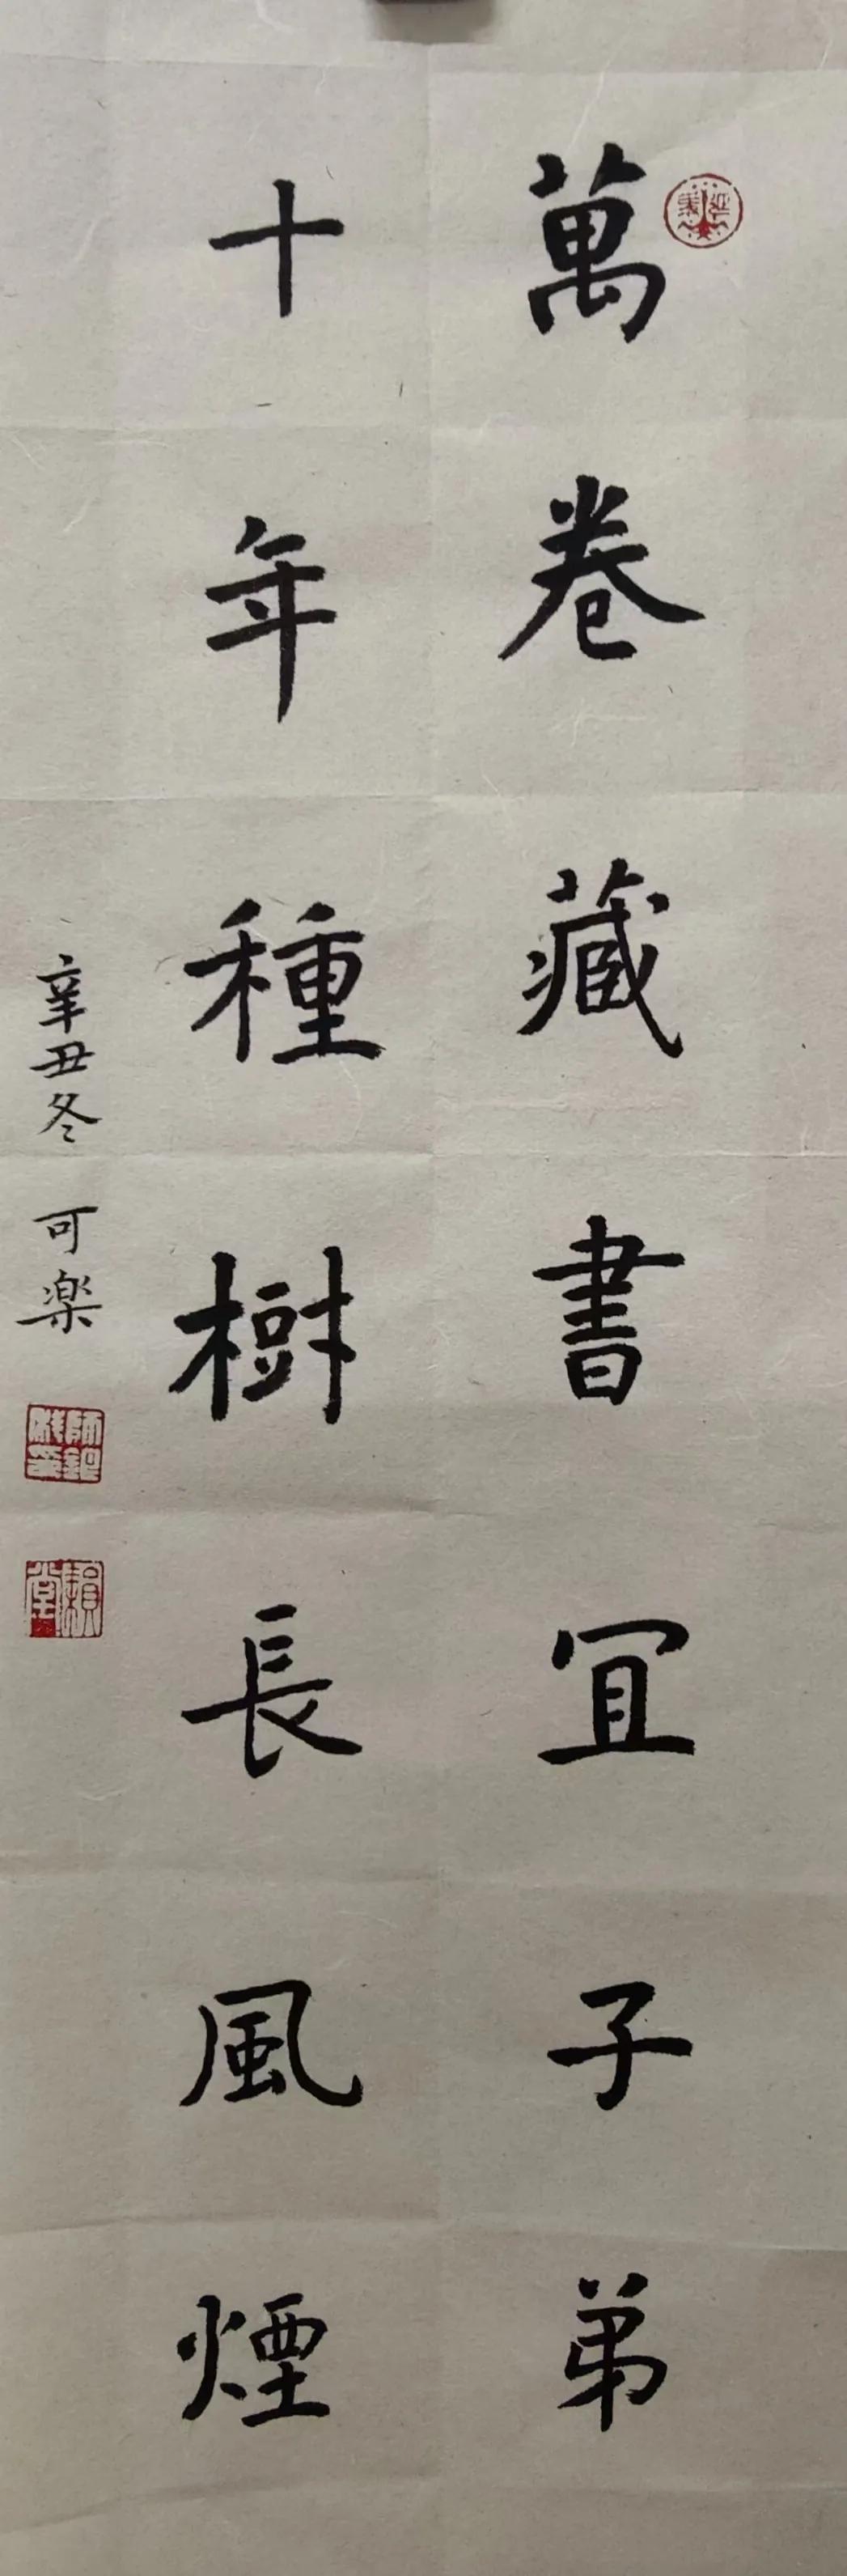 萬卷藏書宜子弟
十年種樹長風煙
辛丑冬 可楽